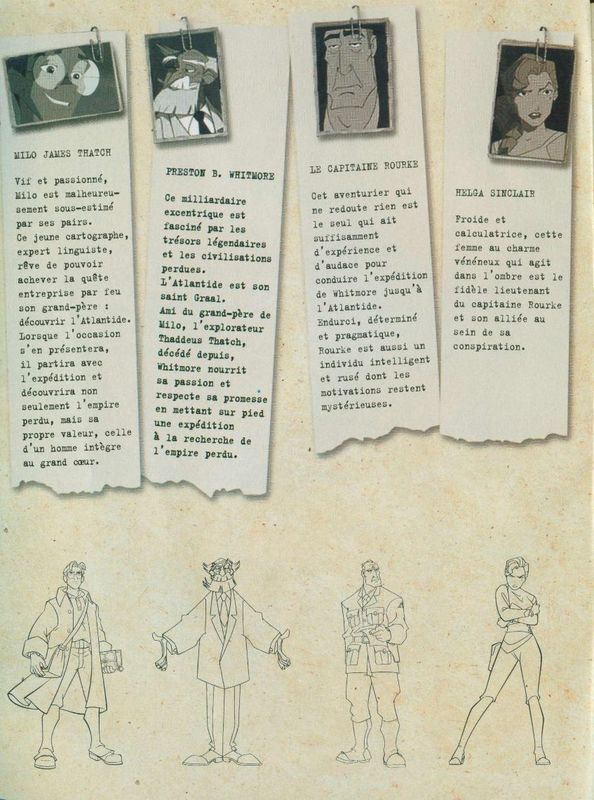 MILO JAMES THATCH
Vif et passionné,
Milo est malheureu-
sement sous-estimé
par ses pairs.
Ce jeune cartographe,
expert linguiste,
rêve de pouvoir
achever la quête
entreprise par feu
son grand-père :
découvrir l'Atlantide.
Lorsque l'occasion
s'en présentera,
il partira avec
l'expédition et
découvrira non
seulement l'empire
perdu, mais sa
propre valeur, celle
d'un homme intègre
au grand cœur.
PRESTON B. WHITMORE
Ce milliardaire
excentrique est
fasciné par les
trésors légendaires
et les civilisations
perdues.
L'Atlantide est son
saint Graal.
Ami du grand-père de
Milo, l'explorateur
Thaddeus Thatch,
décédé depuis,
Whitmore nourrit
sa passion et
respecte sa promesse
en mettant sur pied
une expédition
à la recherche de
l'empire perdu.
LE CAPITAINE ROURKE
Cet aventurier qui
ne redoute rien est
le seul qui ait
suffisamment
d'expérience et
d'audace pour
conduire l'expédition
de Whitmore jusqu'à
l'Atlantide.
Endurci, déterminé
et pragmatique,
Rourke est aussi un
individu intelligent
et rusé dont les
motivations restent
mystérieuses.
HELGA SINCLAIR
Froide et
calculatrice, cette
femme au charme
vénéneux qui agit
dans l'ombre est le
fidèle lieutenant
du capitaine Rourke
et son alliée au
sein de sa
conspiration.